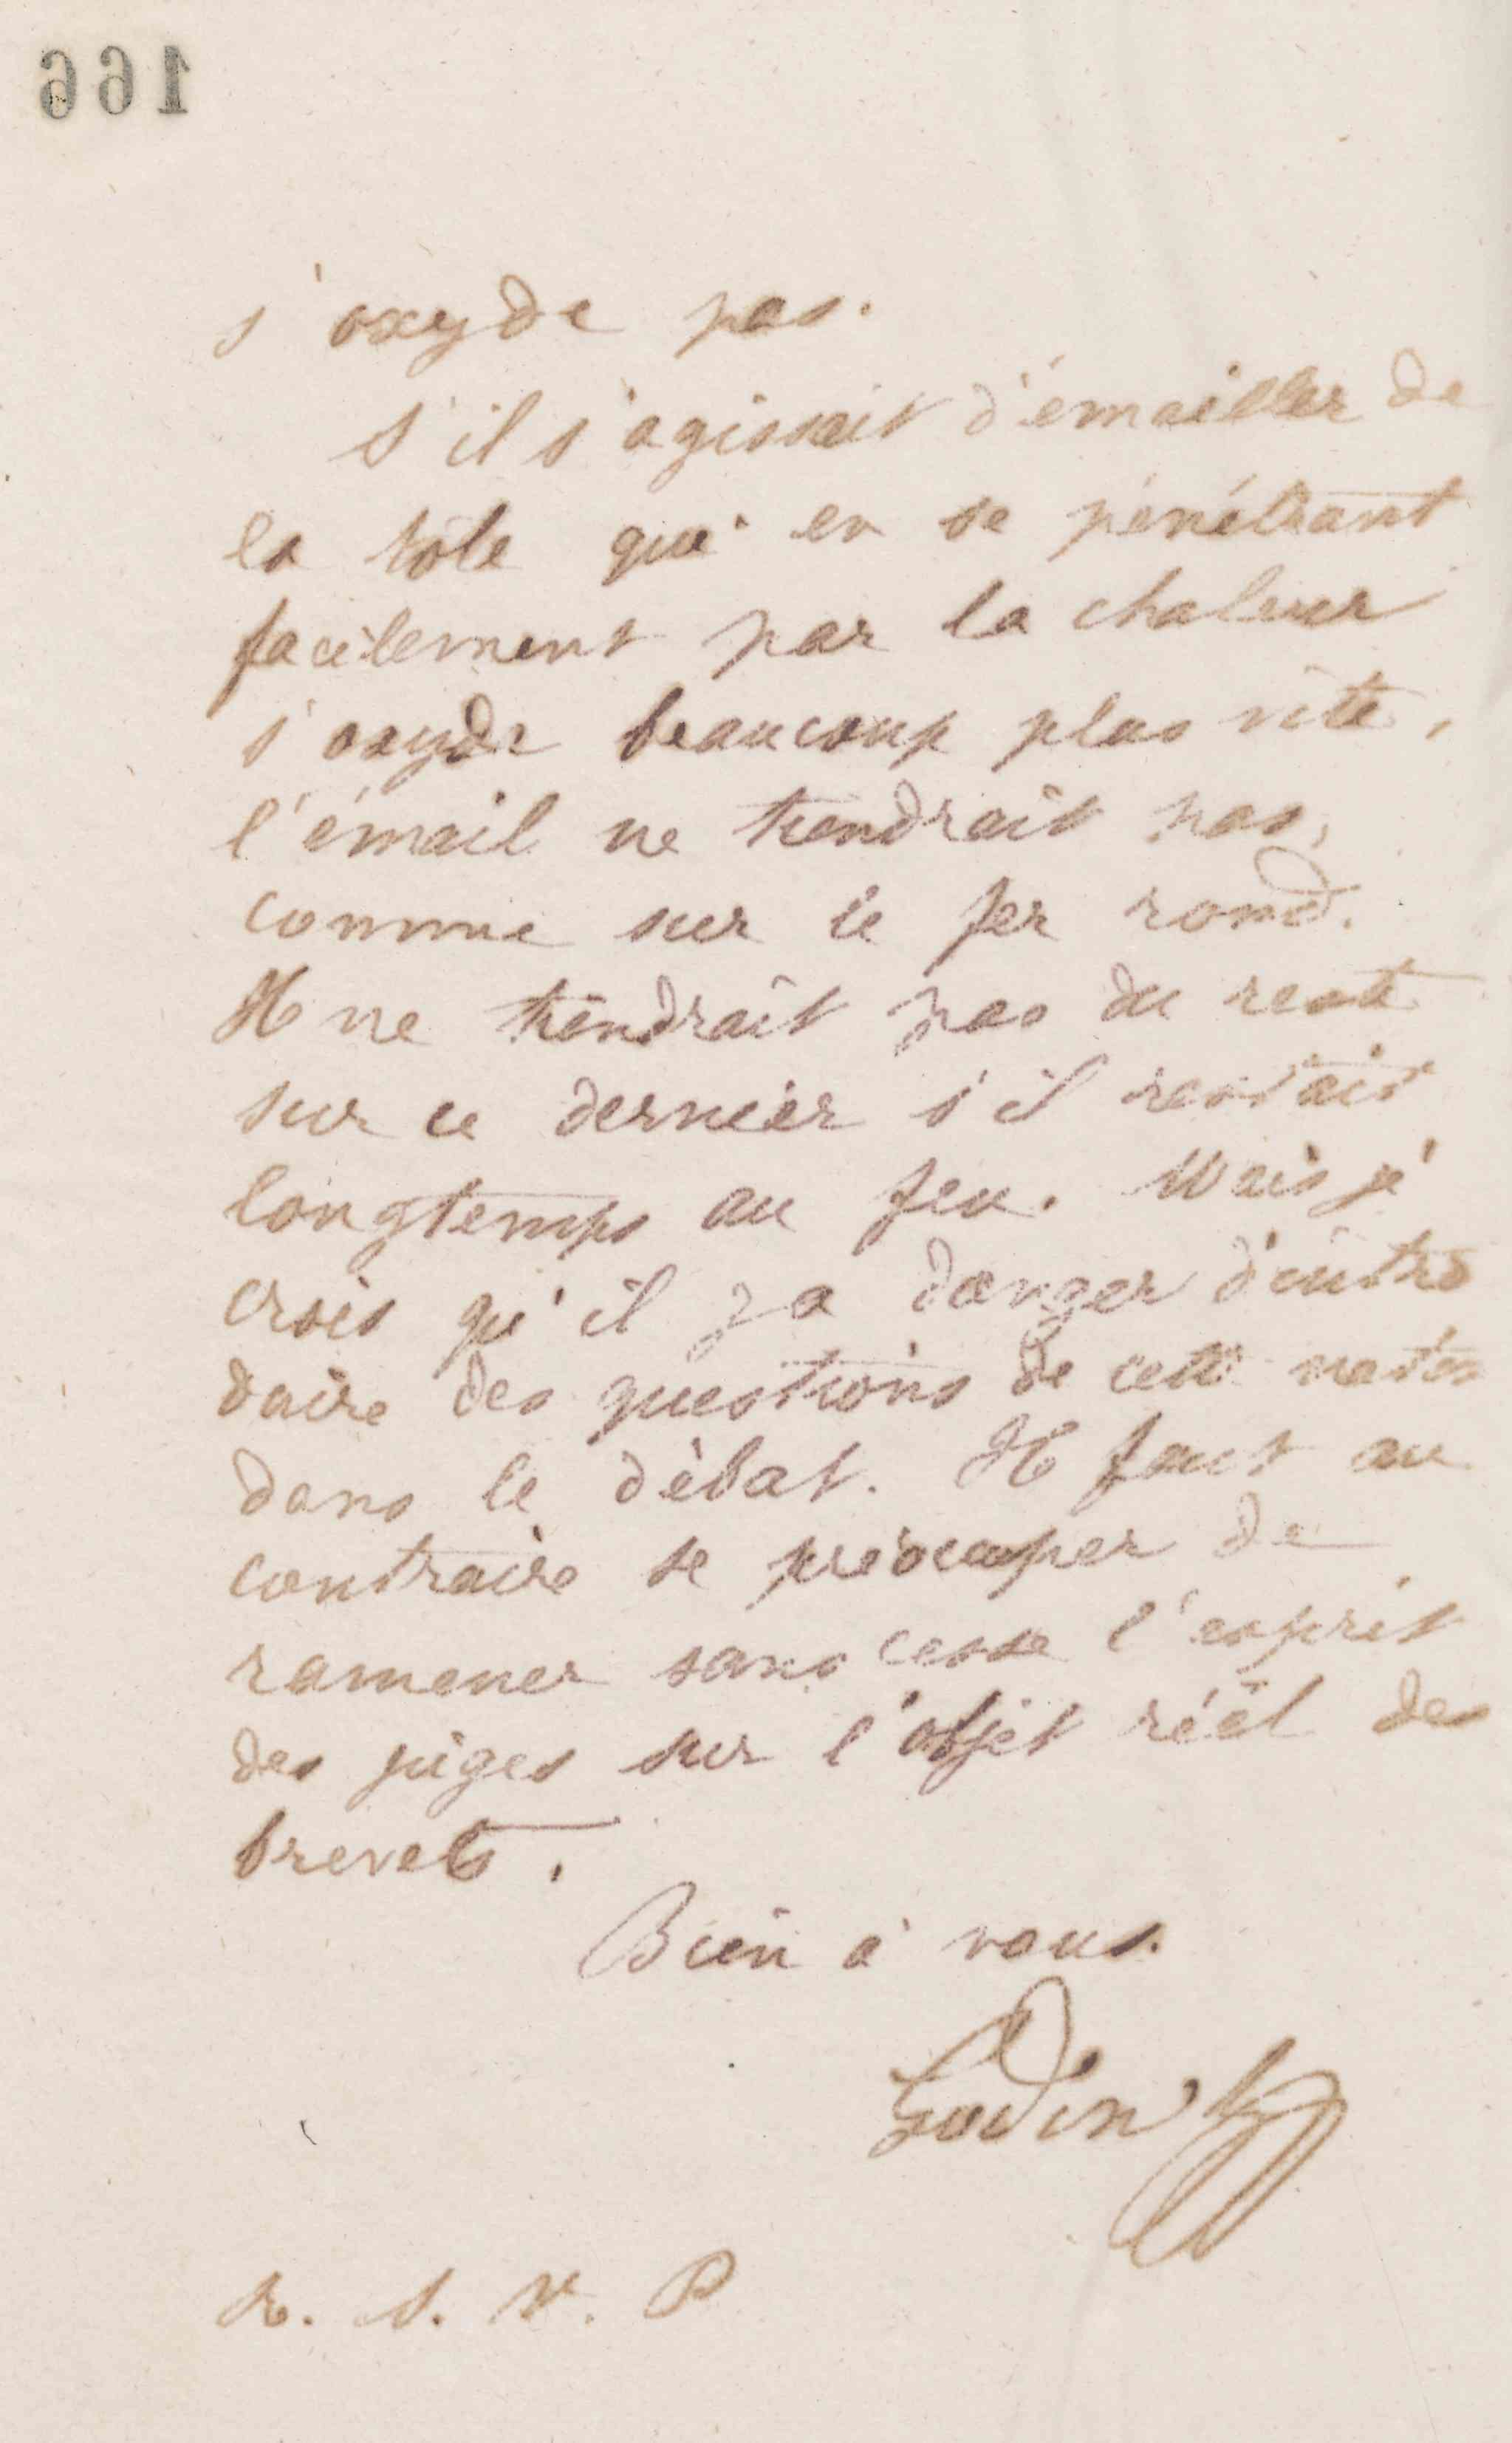 166
s'oxyde pas.
S'il s'agissait d'émailler de
la tôle qui en se pénétrant
facilement par la chaleur
s'oxyde beaucoup plus vite,
l'émail ne tiendrait pas,
comme sur le fer rond.
Il ne tiendrait pas du reste
sur ce dernier s'il restait
longtemps au feu. Mais je
crois qu'il y a danger d'intro
duire des questions de cette nature
dans le débat. Il faut au
contraire se préocuper de
ramener sans cesse l'esprit
des juges sur l'objet réel des
brevets.
Bien à vous.
Godin
R. S. V. P